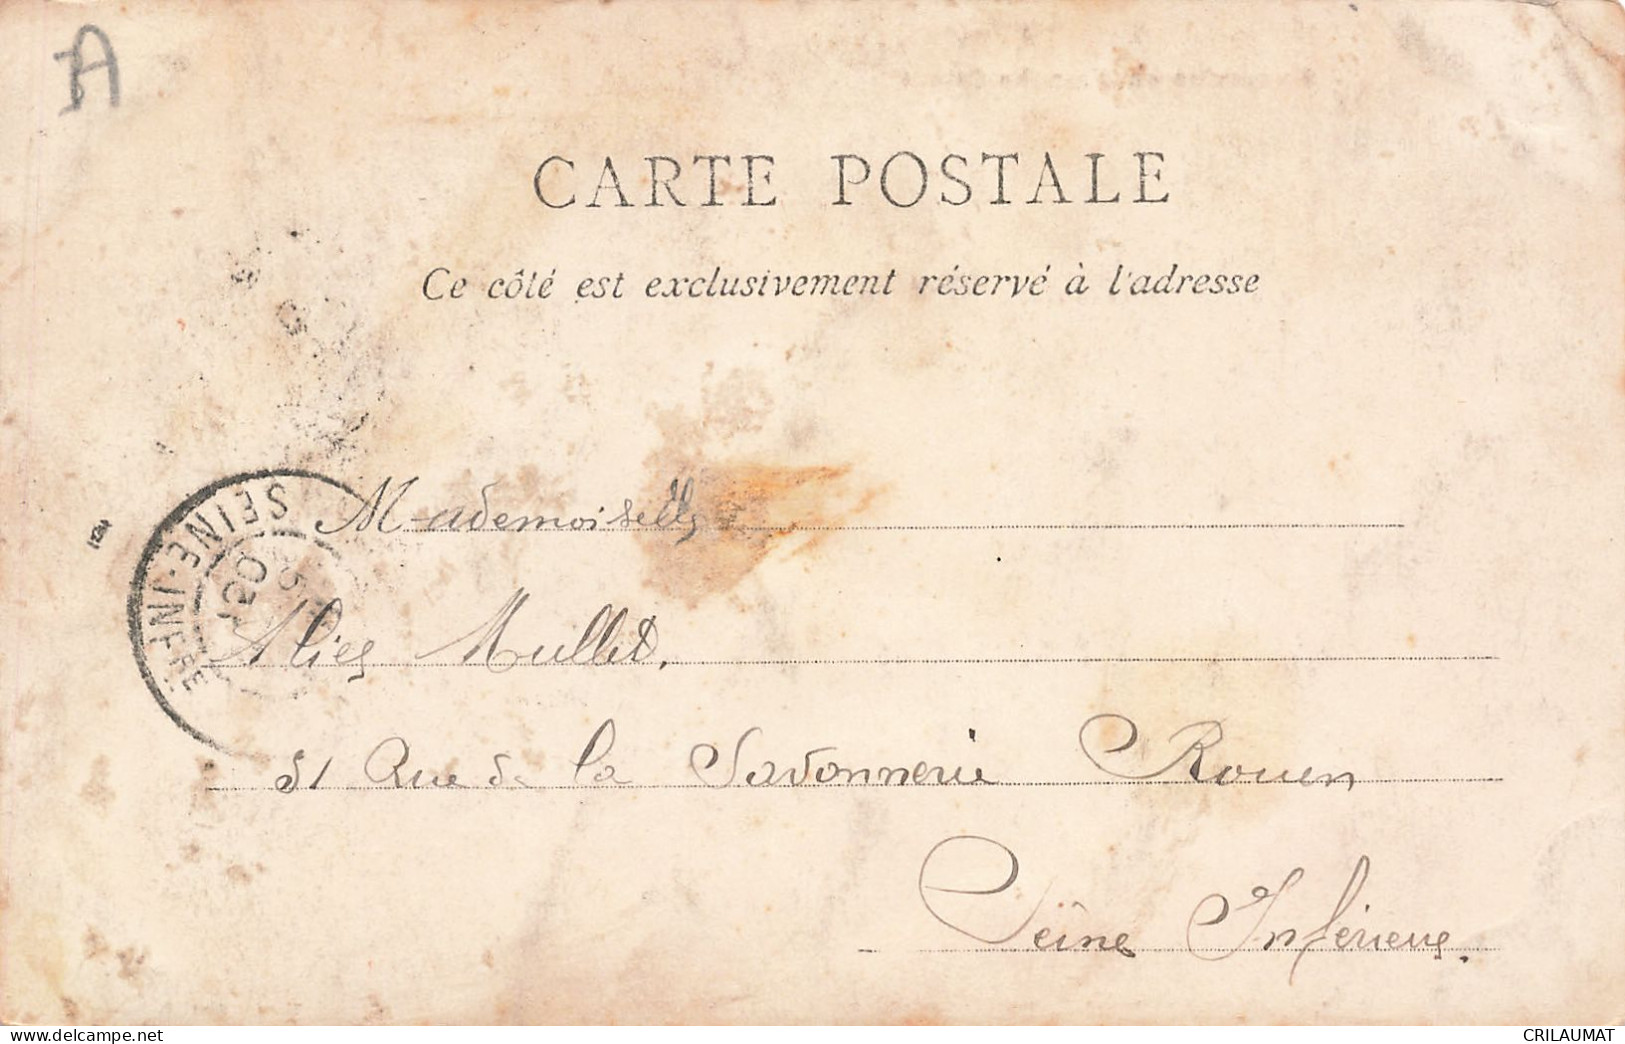 A
CARTE POSTALE
Ce côté est exclusivement réservé à l'adresse
SEINE-INFRE
Mademoiselle
Alice Mullet.
31 Rue de la Savonnerie Rouen
Seine Inférieure.
delcampe.net
CRILAUMAT